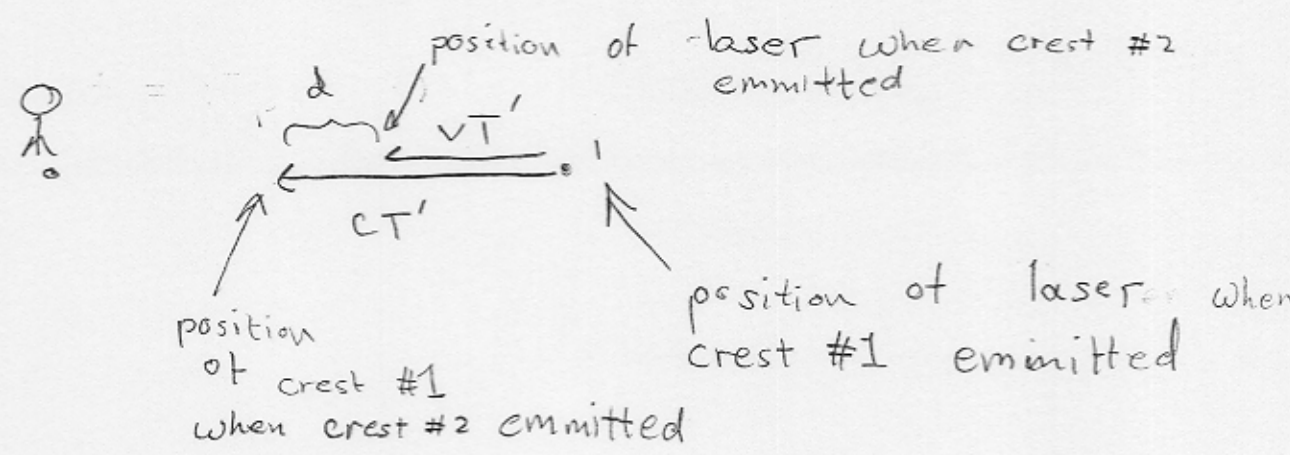 position of laser when crest #2
emmitted
d
vT'
1
cT'
position of laser when
crest #1 eminitted
position
of crest #1
when crest #2 emmitted